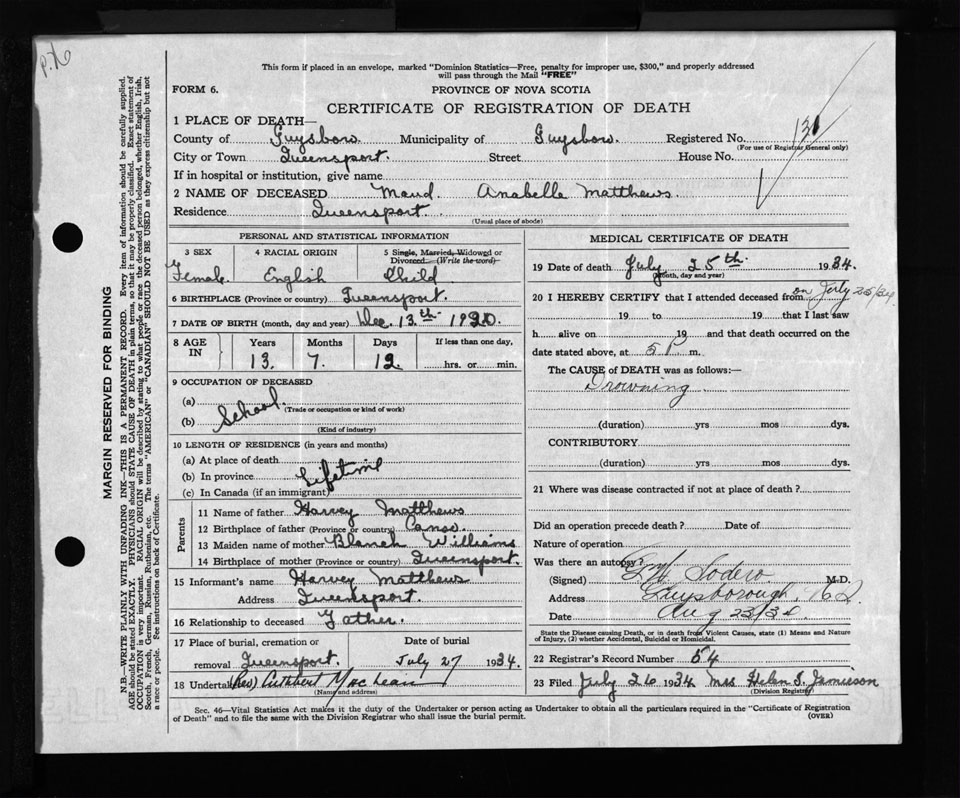 P.76
This form if placed in an envelope, marked "Dominion Statistics—Free, penalty for improper use, $300," and properly addressed
will pass through the Mail "FREE"
FORM 6. PROVINCE OF NOVA SCOTIA
CERTIFICATE OF REGISTRATION OF DEATH
1 PLACE OF DEATH—
County of Guysboro. Municipality of Guysboro. Registered No.
(For use of Registrar General only)
City or Town Queensport. Street House No.
If in hospital or institution, give name
2 NAME OF DECEASED Maud Anabelle Matthews.
Residence Queensport.
(Usual place of abode)
PERSONAL AND STATISTICAL INFORMATION
3 SEX 4 RACIAL ORIGIN 5 Single, Married, Widowed or
Divorced (Write the word)
Female English Child
6 BIRTHPLACE (Province or country) Queensport.
7 DATE OF BIRTH (month, day and year) Dec. 13th 1920.
8 AGE IN Years Months Days If less than one day,
13. 7. 12 hrs. or min.
9 OCCUPATION OF DECEASED
(a)
(Trade or occupation or kind of work)
School.
(b)
(Kind of industry)
10 LENGTH OF RESIDENCE (in years and months)
(a) At place of death
(b) In province Lifetime
(c) In Canada (if an immigrant)
Parents
11 Name of father Harvey Matthews
12 Birthplace of father (Province or country) Canso.
13 Maiden name of mother Blanch Williams
14 Birthplace of mother (Province or country) Queensport.
15 Informant's name Harvey Matthews
Address Queensport.
16 Relationship to deceased Father.
17 Place of burial, cremation or Date of burial
removal Queensport. July 27 1934.
18 Undertaker (Rev) Cuthbert MacLean
(Name and address)
MEDICAL CERTIFICATE OF DEATH
19 Date of death July 25th 1934.
(Month, day and year)
20 I HEREBY CERTIFY that I attended deceased from on July 25/34
19 to 19 that I last saw
h alive on 19 and that death occurred on the
date stated above, at 5 P m.
The CAUSE of DEATH was as follows:—
Drowning
(duration) yrs mos dys.
CONTRIBUTORY
(duration) yrs mos dys.
21 Where was disease contracted if not at place of death?
Did an operation precede death? Date of
Nature of operation
Was there an autopsy?
(Signed) Sodero M.D.
Address Guysborough,
Date Aug 23/34
State the Disease causing Death, or in death from Violent Causes, state (1) Means and
Nature of Injury, (2) whether Accidental, Suicidal or Homicidal.
22 Registrar's Record Number 54
23 Filed July 26 1934 Mrs Helen S. Jamieson
(Division Registrar)
Sec. 46—Vital Statistics Act makes it the duty of the Undertaker or person acting as Undertaker to obtain all the particulars required in the "Certificate of Registration
of Death" and to file the same with the Division Registrar who shall issue the burial permit. (OVER)
MARGIN RESERVED FOR BINDING
N.B.—WRITE PLAINLY WITH UNFADING INK—THIS IS A PERMANENT RECORD. Every item of information should be carefully supplied.
AGE should be stated EXACTLY. PHYSICIANS should STATE CAUSE OF DEATH in plain terms, so that it may be properly classified. Exact statement of
OCCUPATION is very important. RACIAL ORIGIN will be described by stating to what people or race the deceased person belonged, whether English, Irish,
Scotch, French, German, Russian, Ruthenian, etc. The terms "AMERICAN" or "CANADIAN" SHOULD NOT BE USED as they express citizenship but not
a race or people. See instructions on back of Certificate.